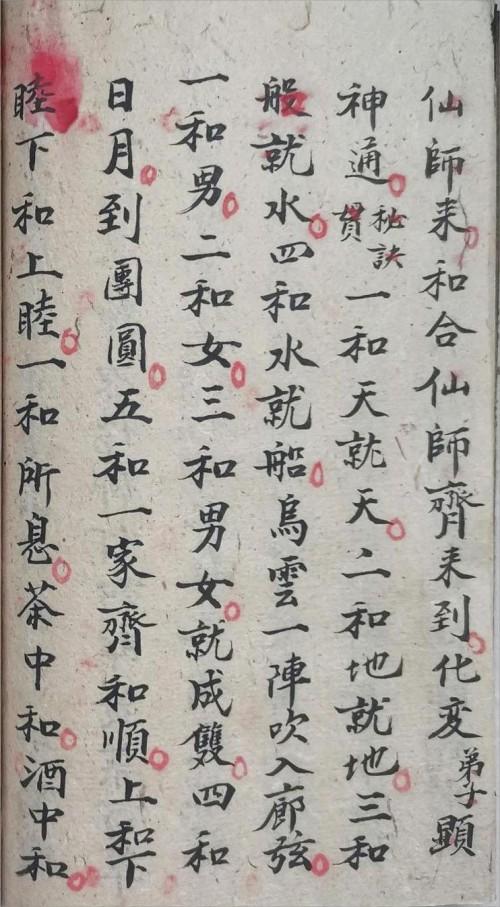 仙師来和合仙師齊来到化变弟子顯
神通秘訣貫一和天就天二和地就地三和
般就水四和水就船烏雲一陣吹入廊弦
一和男二和女三和男女就成雙四和
日月到團圓五和一家齊和順上和下
睦下和上睦一和所息茶中和酒中和